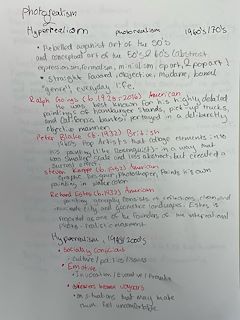 Photorealism
Hyperrealism photorealism 1960's/70's
• Rebelled against art of the 50's
and conceptual art of the 50's & 60's (abstract
expressionism, formalism, minimalism, op art, & pop art)
• straight forward, objective, mudane, banal
"genre", everyday life.
Ralph Goings (b. 1928-2016) American
He was best known for his highly detailed
paintings of hamburger stands, pick-up trucks,
and California banks, portrayed in a deliberately
objective manner.
Peter Blake (b.1932) British
1960's Pop Artists that collage elements into
his painting (like Rosenquist) in a way that
was smaller scale and less abstract but created a
surreal effect.
(b.1932) American
Graphic designer, photographer, Paints his own
painting in watercolor
Richard Estes (b.1932) American
painting generally consists of reflections, clean, and
inanimate city and geometric landscapes. Estes is
regarded as one of the founders of the international
photo-realist movement
Hyperrealism 1990/2000's
• Socially Conscious
• culture/politics/issues
• Emotive
• Invocation/Evocative/Provoke
• viewers become voyeurs
in situations that may make
them feel uncomfortable